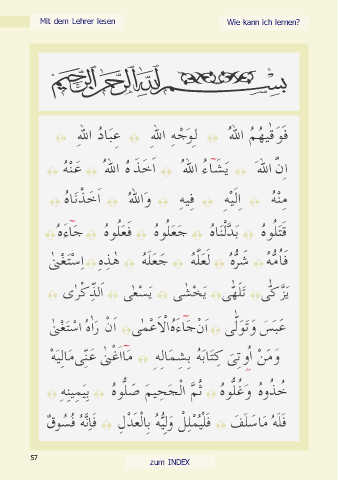 Mit dem Lehrer lesen
Wie kann ich lernen?
بِسْمِ اللهِ الرَّحْمٰنِ الرَّحِيمِ
فَوَقٰيهُمُ اللهُ لِوَجْهِ اللهِ عِبَادُ اللهِ
اِنَّ اللهَ يَشَاءُ اللهُ اَخَذَهُ اللهُ عَنْهُ
مِنْهُ اِلَيْهِ فِيهِ وَاللهُ اَخَذْنَاهُ
قَتَلُوهُ بَدَّلْنَاهُ جَعَلُوهُ فَعَلُوهُ جَاءَهُ
فَاُمُّهُ شَرُّهُ لَعَلَّهُ جَعَلَهُ هٰذِهِ اِسْتَغْنٰى
يَزَّكّٰى تَلَهّٰى يَخْشٰى يَسْعٰى الذِّكْرٰى
عَبَسَ وَتَوَلّٰى اَنْ جَاءَهُ الْاَعْمٰى اَنْ رَاٰهُ اسْتَغْنٰى
وَمَنْ اُوتِىَ كِتَابَهُ بِشِمَالِهِ مَا اَغْنٰى عَنِّى مَالِيَهْ
خُذُوهُ فَغُلُّوهُ ثُمَّ الْجَحِيمَ صَلُّوهُ بِيَمِينِهِ
فَلَهُ مَا سَلَفَ فَلْيُمْلِلْ وَلِيُّهُ بِالْعَدْلِ فَاِنَّهُ فُسُوقٌ
57
zum INDEX